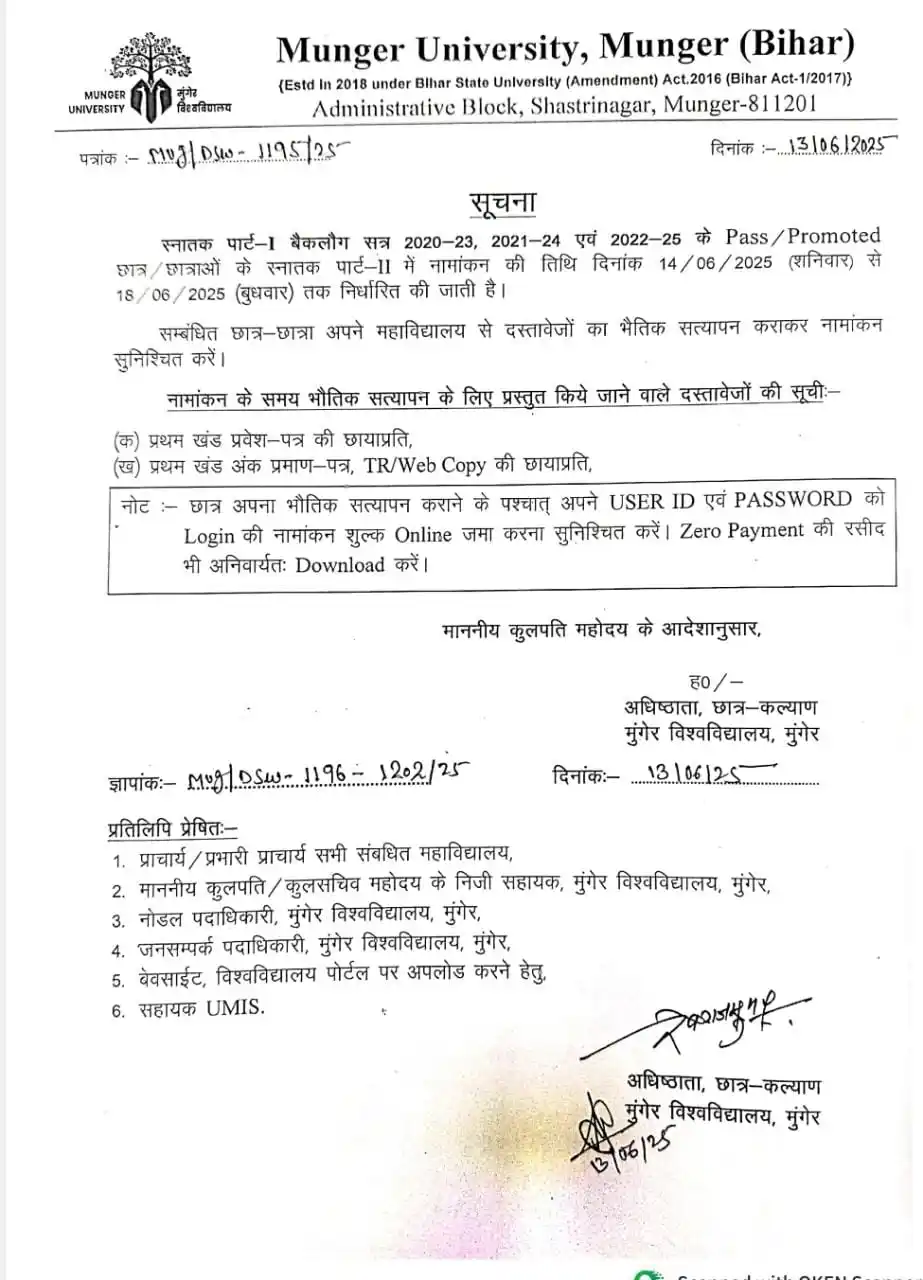 Munger University, Munger (Bihar)
{Estd in 2018 under Bihar State University (Amendment) Act.2016 (Bihar Act-1/2017)}
Administrative Block, Shastrinagar, Munger-811201
MUNGER UNIVERSITY
मुंगेर विश्वविद्यालय
पत्रांक :– MUJ/DSW- 1195/25
दिनांक :–...13/06/2025
सूचना
स्नातक पार्ट–I बैकलौग सत्र 2020-23, 2021-24 एवं 2022-25 के Pass/Promoted
छात्र/छात्राओं के स्नातक पार्ट–II में नामांकन की तिथि दिनांक 14/06/2025 (शनिवार) से
18/06/2025 (बुधवार) तक निर्धारित की जाती है।
सम्बंधित छात्र–छात्रा अपने महाविद्यालय से दस्तावेजों का भैतिक सत्यापन कराकर नामांकन
सुनिश्चित करें।
नामांकन के समय भौतिक सत्यापन के लिए प्रस्तुत किये जाने वाले दस्तावेजों की सूचीः–
(क) प्रथम खंड प्रवेश–पत्र की छायाप्रति,
(ख) प्रथम खंड अंक प्रमाण–पत्र, TR/Web Copy की छायाप्रति,
नोट :– छात्र अपना भौतिक सत्यापन कराने के पश्चात् अपने USER ID एवं PASSWORD को
Login की नामांकन शुल्क Online जमा करना सुनिश्चित करें। Zero Payment की रसीद
भी अनिवार्यतः Download करें।
माननीय कुलपति महोदय के आदेशानुसार,
ह0/–
अधिष्ठाता, छात्र–कल्याण
मुंगेर विश्वविद्यालय, मुंगेर
ज्ञापांकः– MUJ/DSW- 1196 – 1202/25
दिनांकः– 13/06/25
प्रतिलिपि प्रेषितः–
1. प्राचार्य/प्रभारी प्राचार्य सभी संबधित महाविद्यालय,
2. माननीय कुलपति/कुलसचिव महोदय के निजी सहायक, मुंगेर विश्वविद्यालय, मुंगेर,
3. नोडल पदाधिकारी, मुंगेर विश्वविद्यालय, मुंगेर,
4. जनसम्पर्क पदाधिकारी, मुंगेर विश्वविद्यालय, मुंगेर,
5. बेवसाईट, विश्वविद्यालय पोर्टल पर अपलोड करने हेतु,
6. सहायक UMIS.
अधिष्ठाता, छात्र–कल्याण
मुंगेर विश्वविद्यालय, मुंगेर
13/06/25